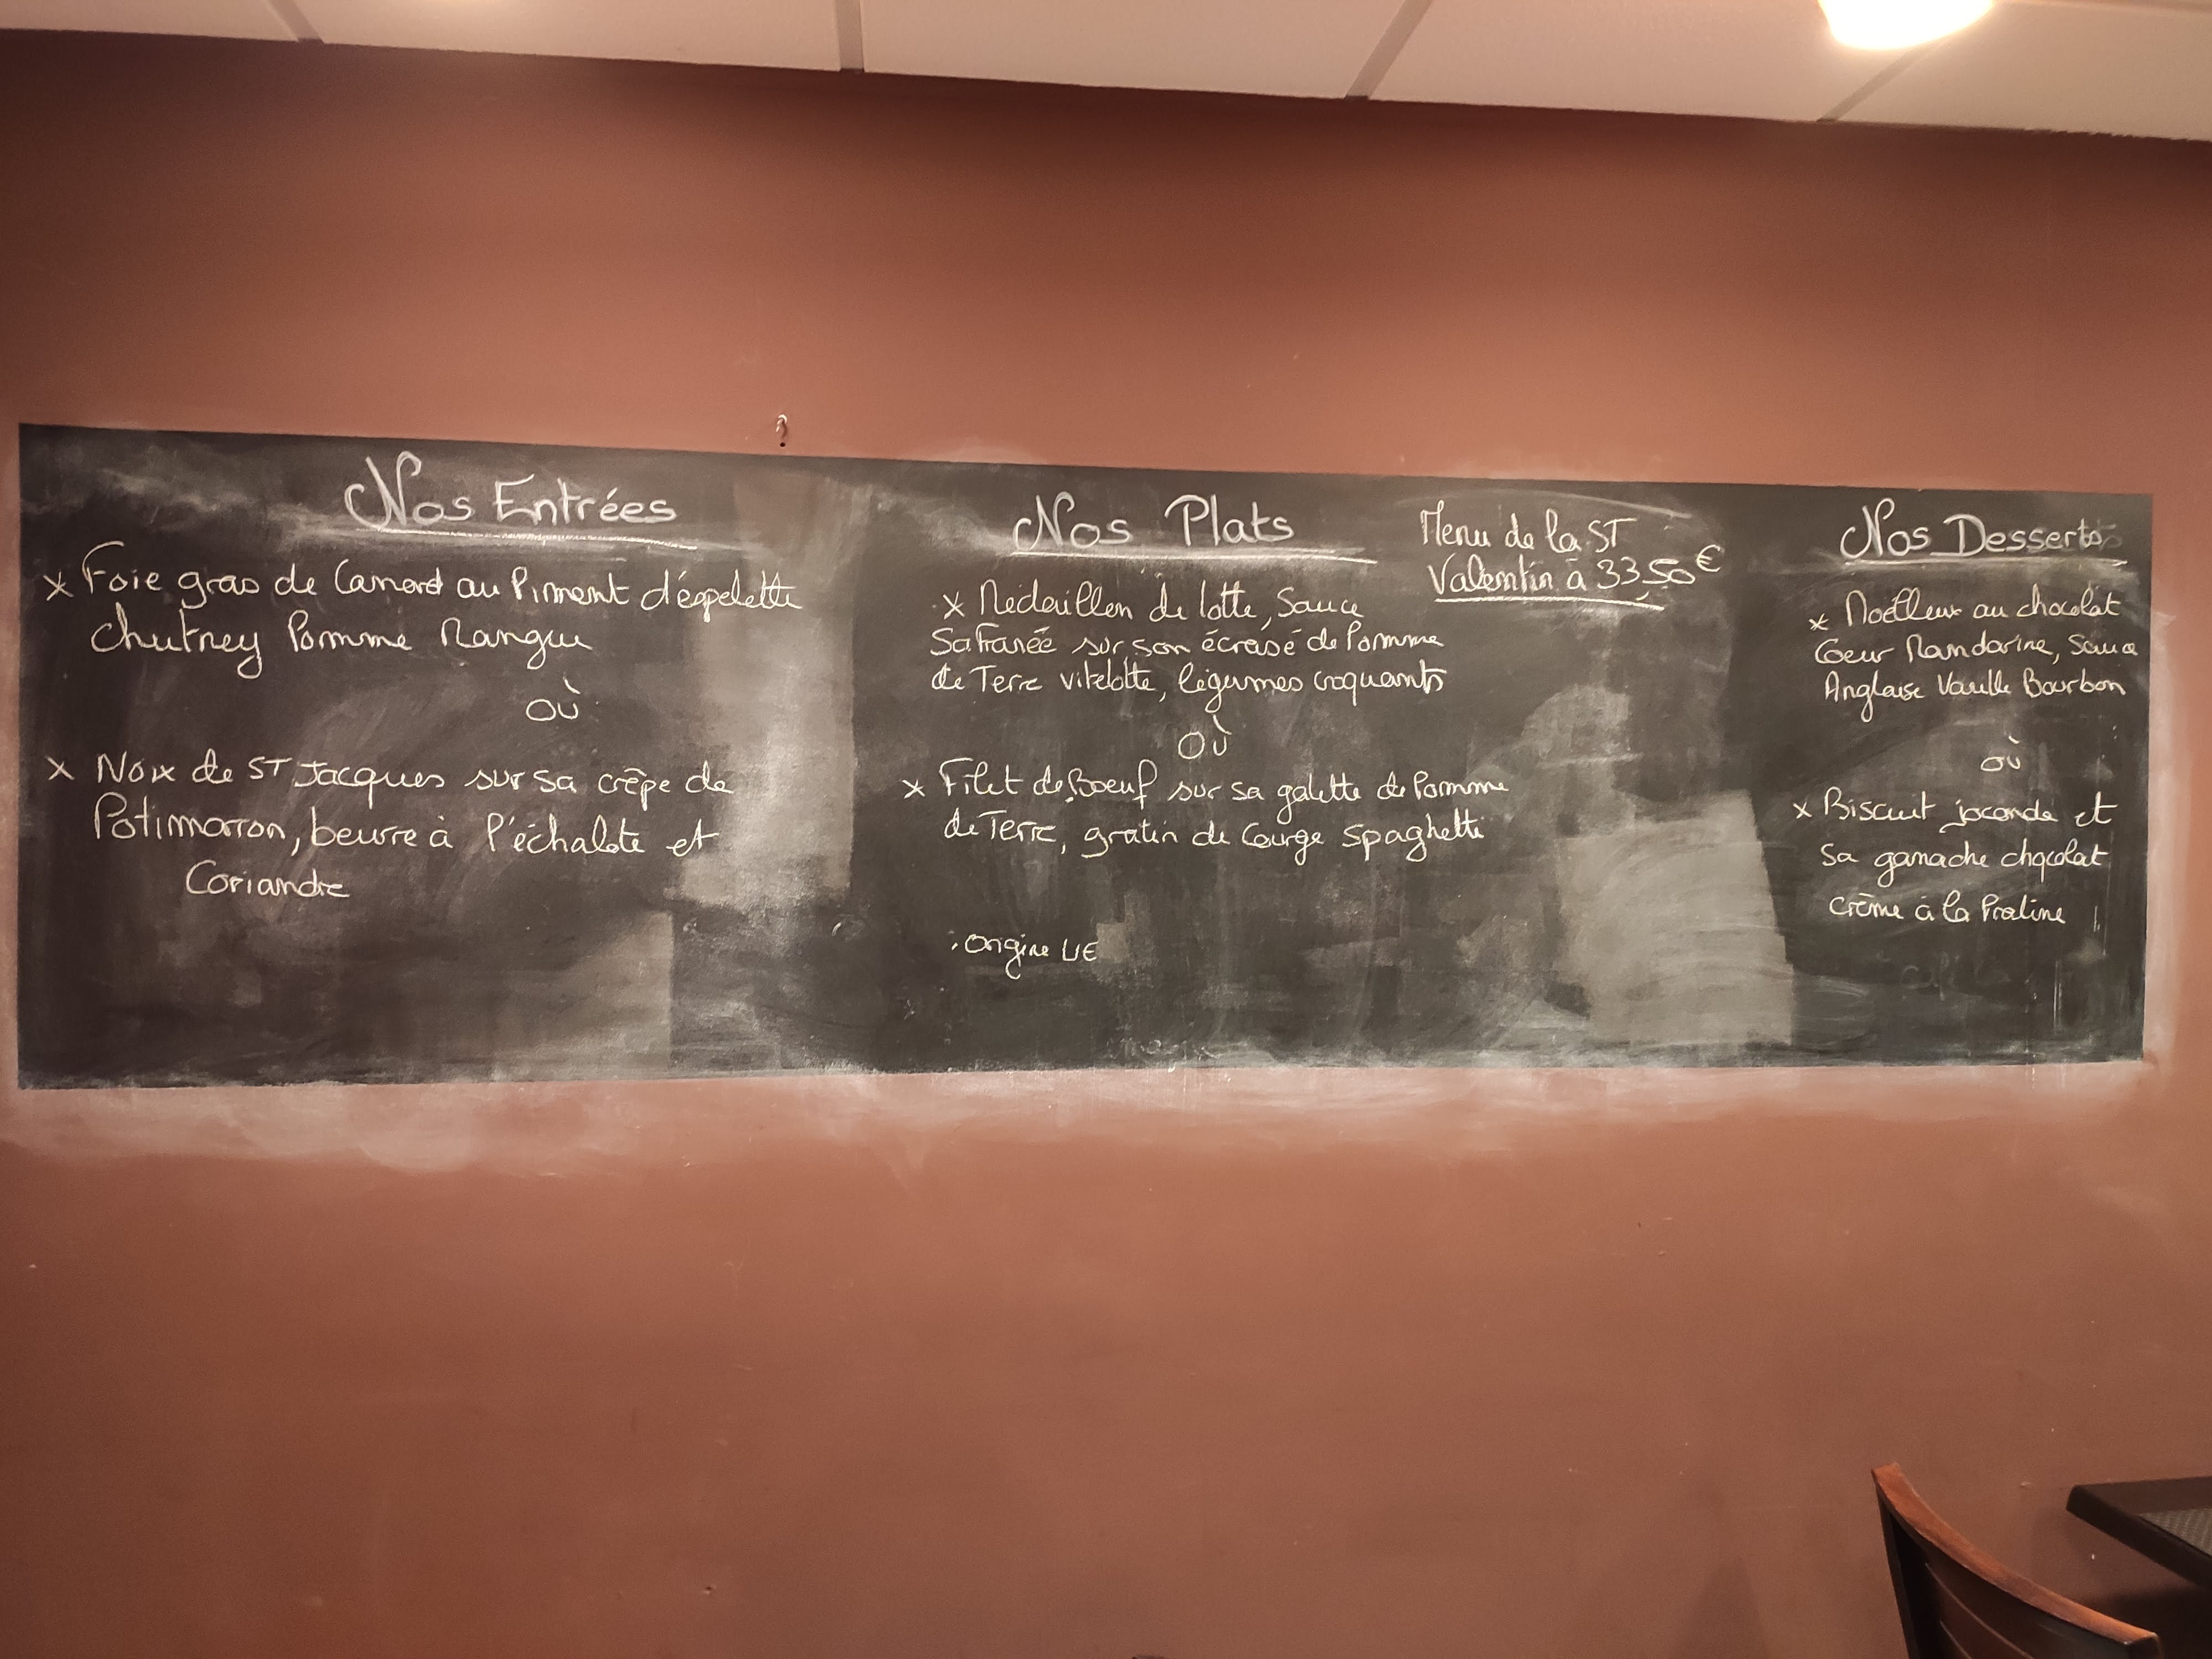 Nos Entrées
x Foie gras de Canard au Piment d'éspelette
chutney Pomme Mangue
où
x Noix de ST Jacques sur sa crêpe de
Potimarron, beurre à l'échalote et
Coriandre
Nos Plats
x Médaillon de lotte, Sauce
Safranée sur son écrasé de Pomme
de Terre vitelotte, légumes croquants
où
x Filet de Boeuf sur sa galette de Pomme
de Terre, gratin de Courge Spaghetti
. Origine UE
Menu de la ST
Valentin à 33,50€
Nos Desserts
x Moelleux au chocolat
Coeur Mandarine, Sauce
Anglaise Vanille Bourbon
où
x Biscuit joconde et
Sa ganache chocolat
crème à la Praline